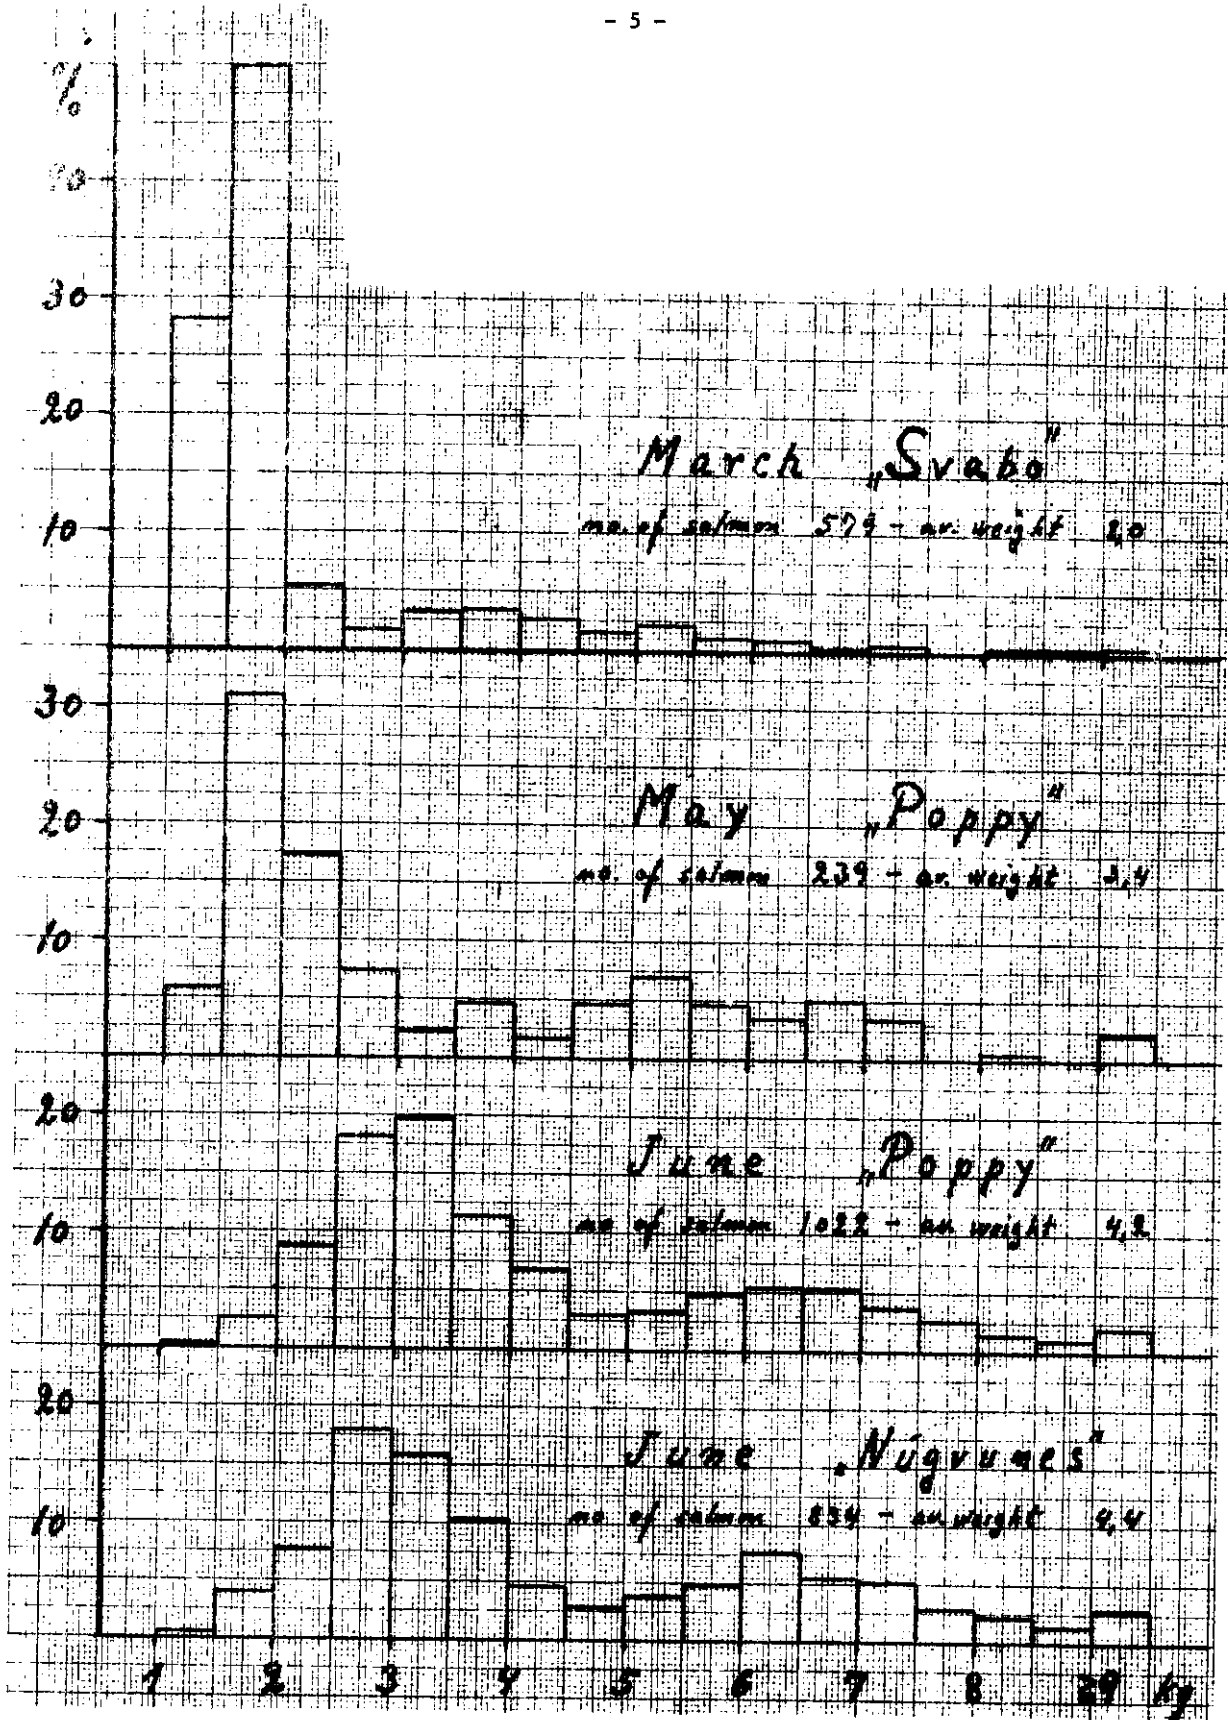 - 5 -
%
40
30
20
10
March „Svabo"
no. of salmon 579 - av. weight 2,0
30
20
10
May „Poppy"
no. of salmon 239 - av. weight 3,4
20
10
June „Poppy"
no of salmon 1022 - av. weight 4,2
20
10
June „Núgvunes"
no of salmon 834 - av. weight 4,4
1 2 3 4 5 6 7 8 ≥9 kg